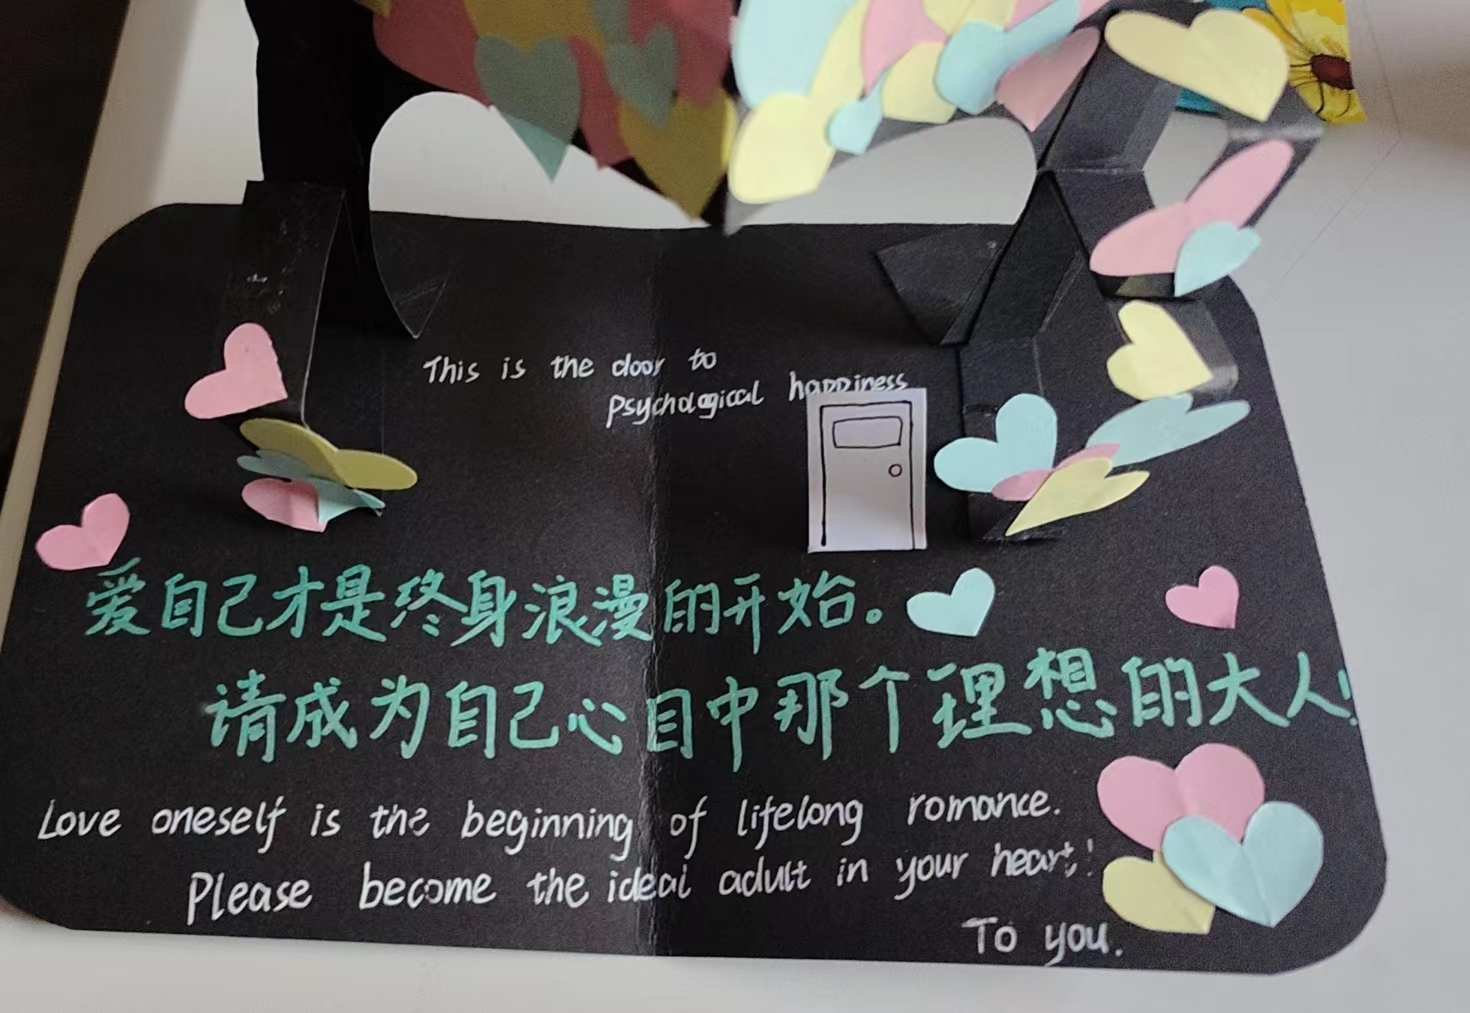 This is the door to
psychological happiness
爱自己才是终身浪漫的开始。
请成为自己心目中那个理想的大人!
Love oneself is the beginning of lifelong romance.
Please become the ideal adult in your heart!
To you.